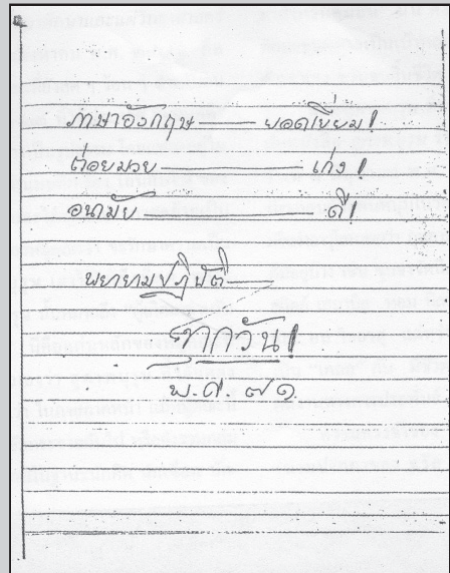 ภาษาอังกฤษ —— ยอดเยี่ยม!
ต่อยมวย —— เก่ง!
อนามัย —— ดี!
พยายามปฏิบัติ ——
ทุกวัน!
พ.ศ. ๗๑